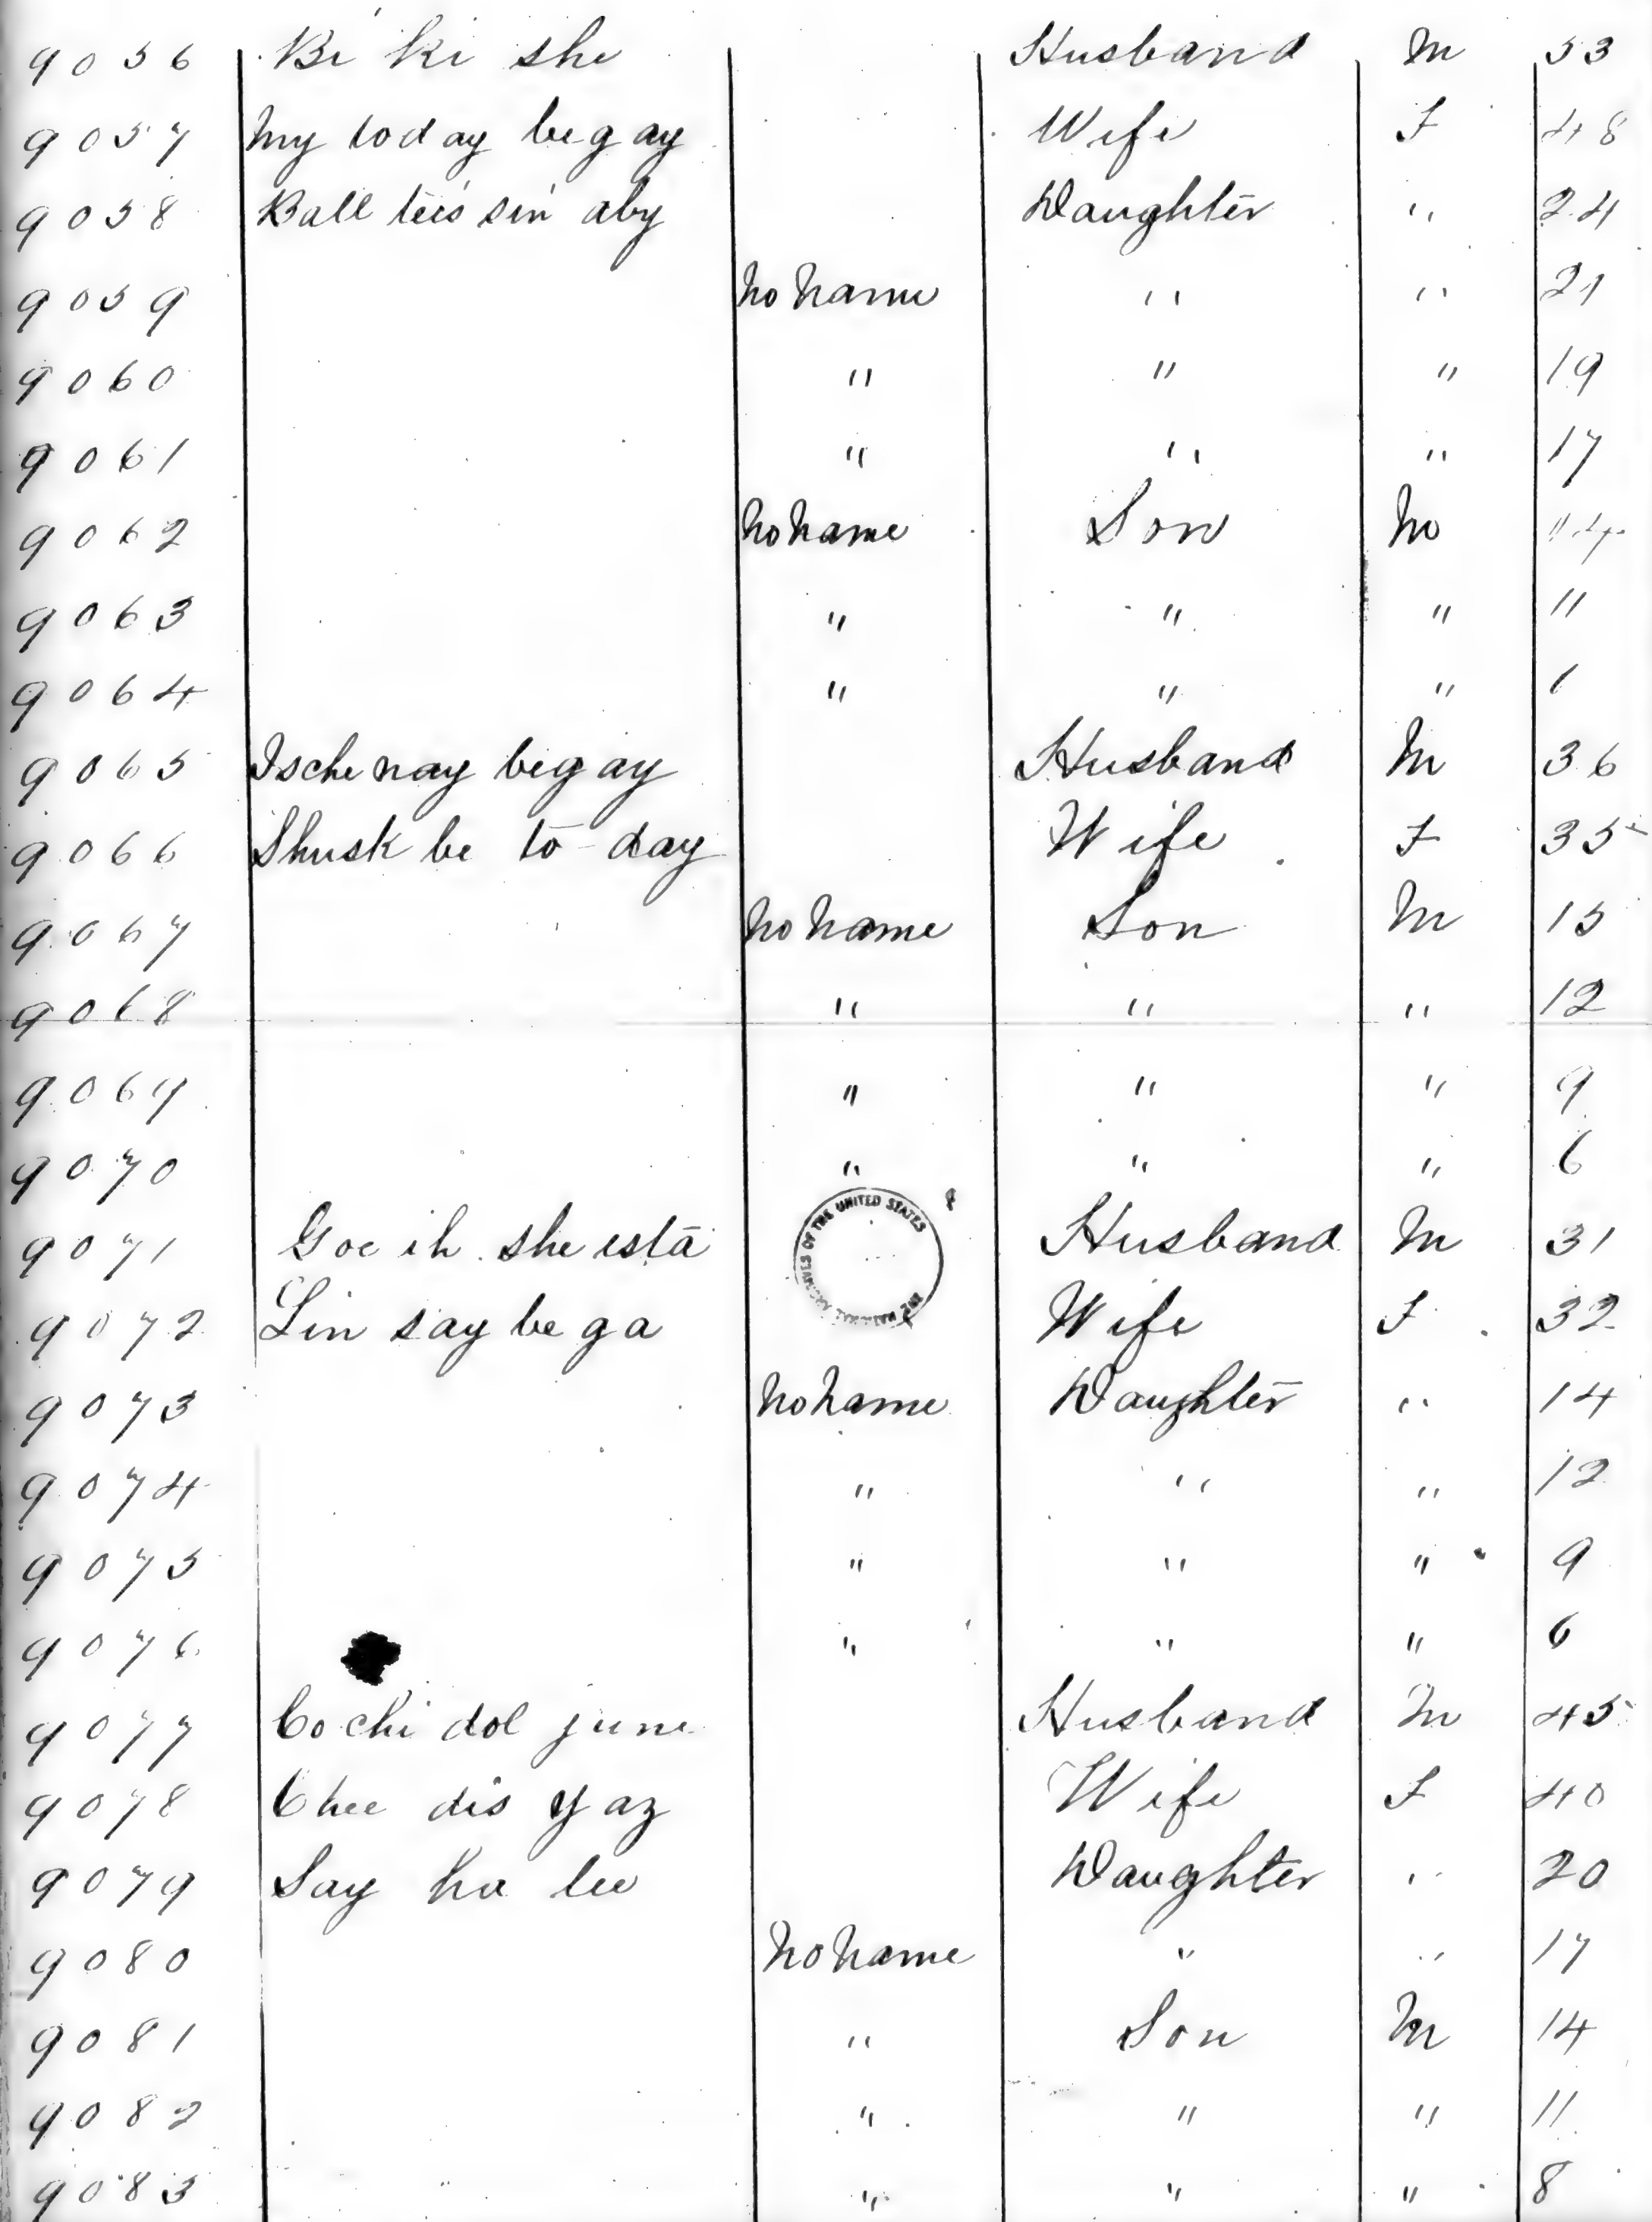 9056 Bi ki she Husband M 53
9057 My today begay Wife F 48
9058 Ball tees sin aby Daughter " 24
9059 No Name " " 21
9060 " " " 19
9061 " " " 17
9062 No Name Son M 14
9063 " " " 11
9064 " " "
9065 Ischenay begay Husband M 36
9066 Shusk be to day Wife F 35
9067 No Name Son M 15
9068 " " " 12
9069 " " " 9
9070 " " " 6
OF THE UNITED STATES
9071 Goe ih she esta Husband M 31
9072 Lin say be ga Wife F 32
9073 No Name Daughter " 14
9074 " " " 12
9075 " " " 9
9076 " " " 6
9077 Co chi dol june Husband M 45
9078 Chee dis yaz Wife F 40
9079 Say ha lee Daughter " 20
9080 No Name " " 17
9081 " Son M 14
9082 " " " 11
9083 " " " 8